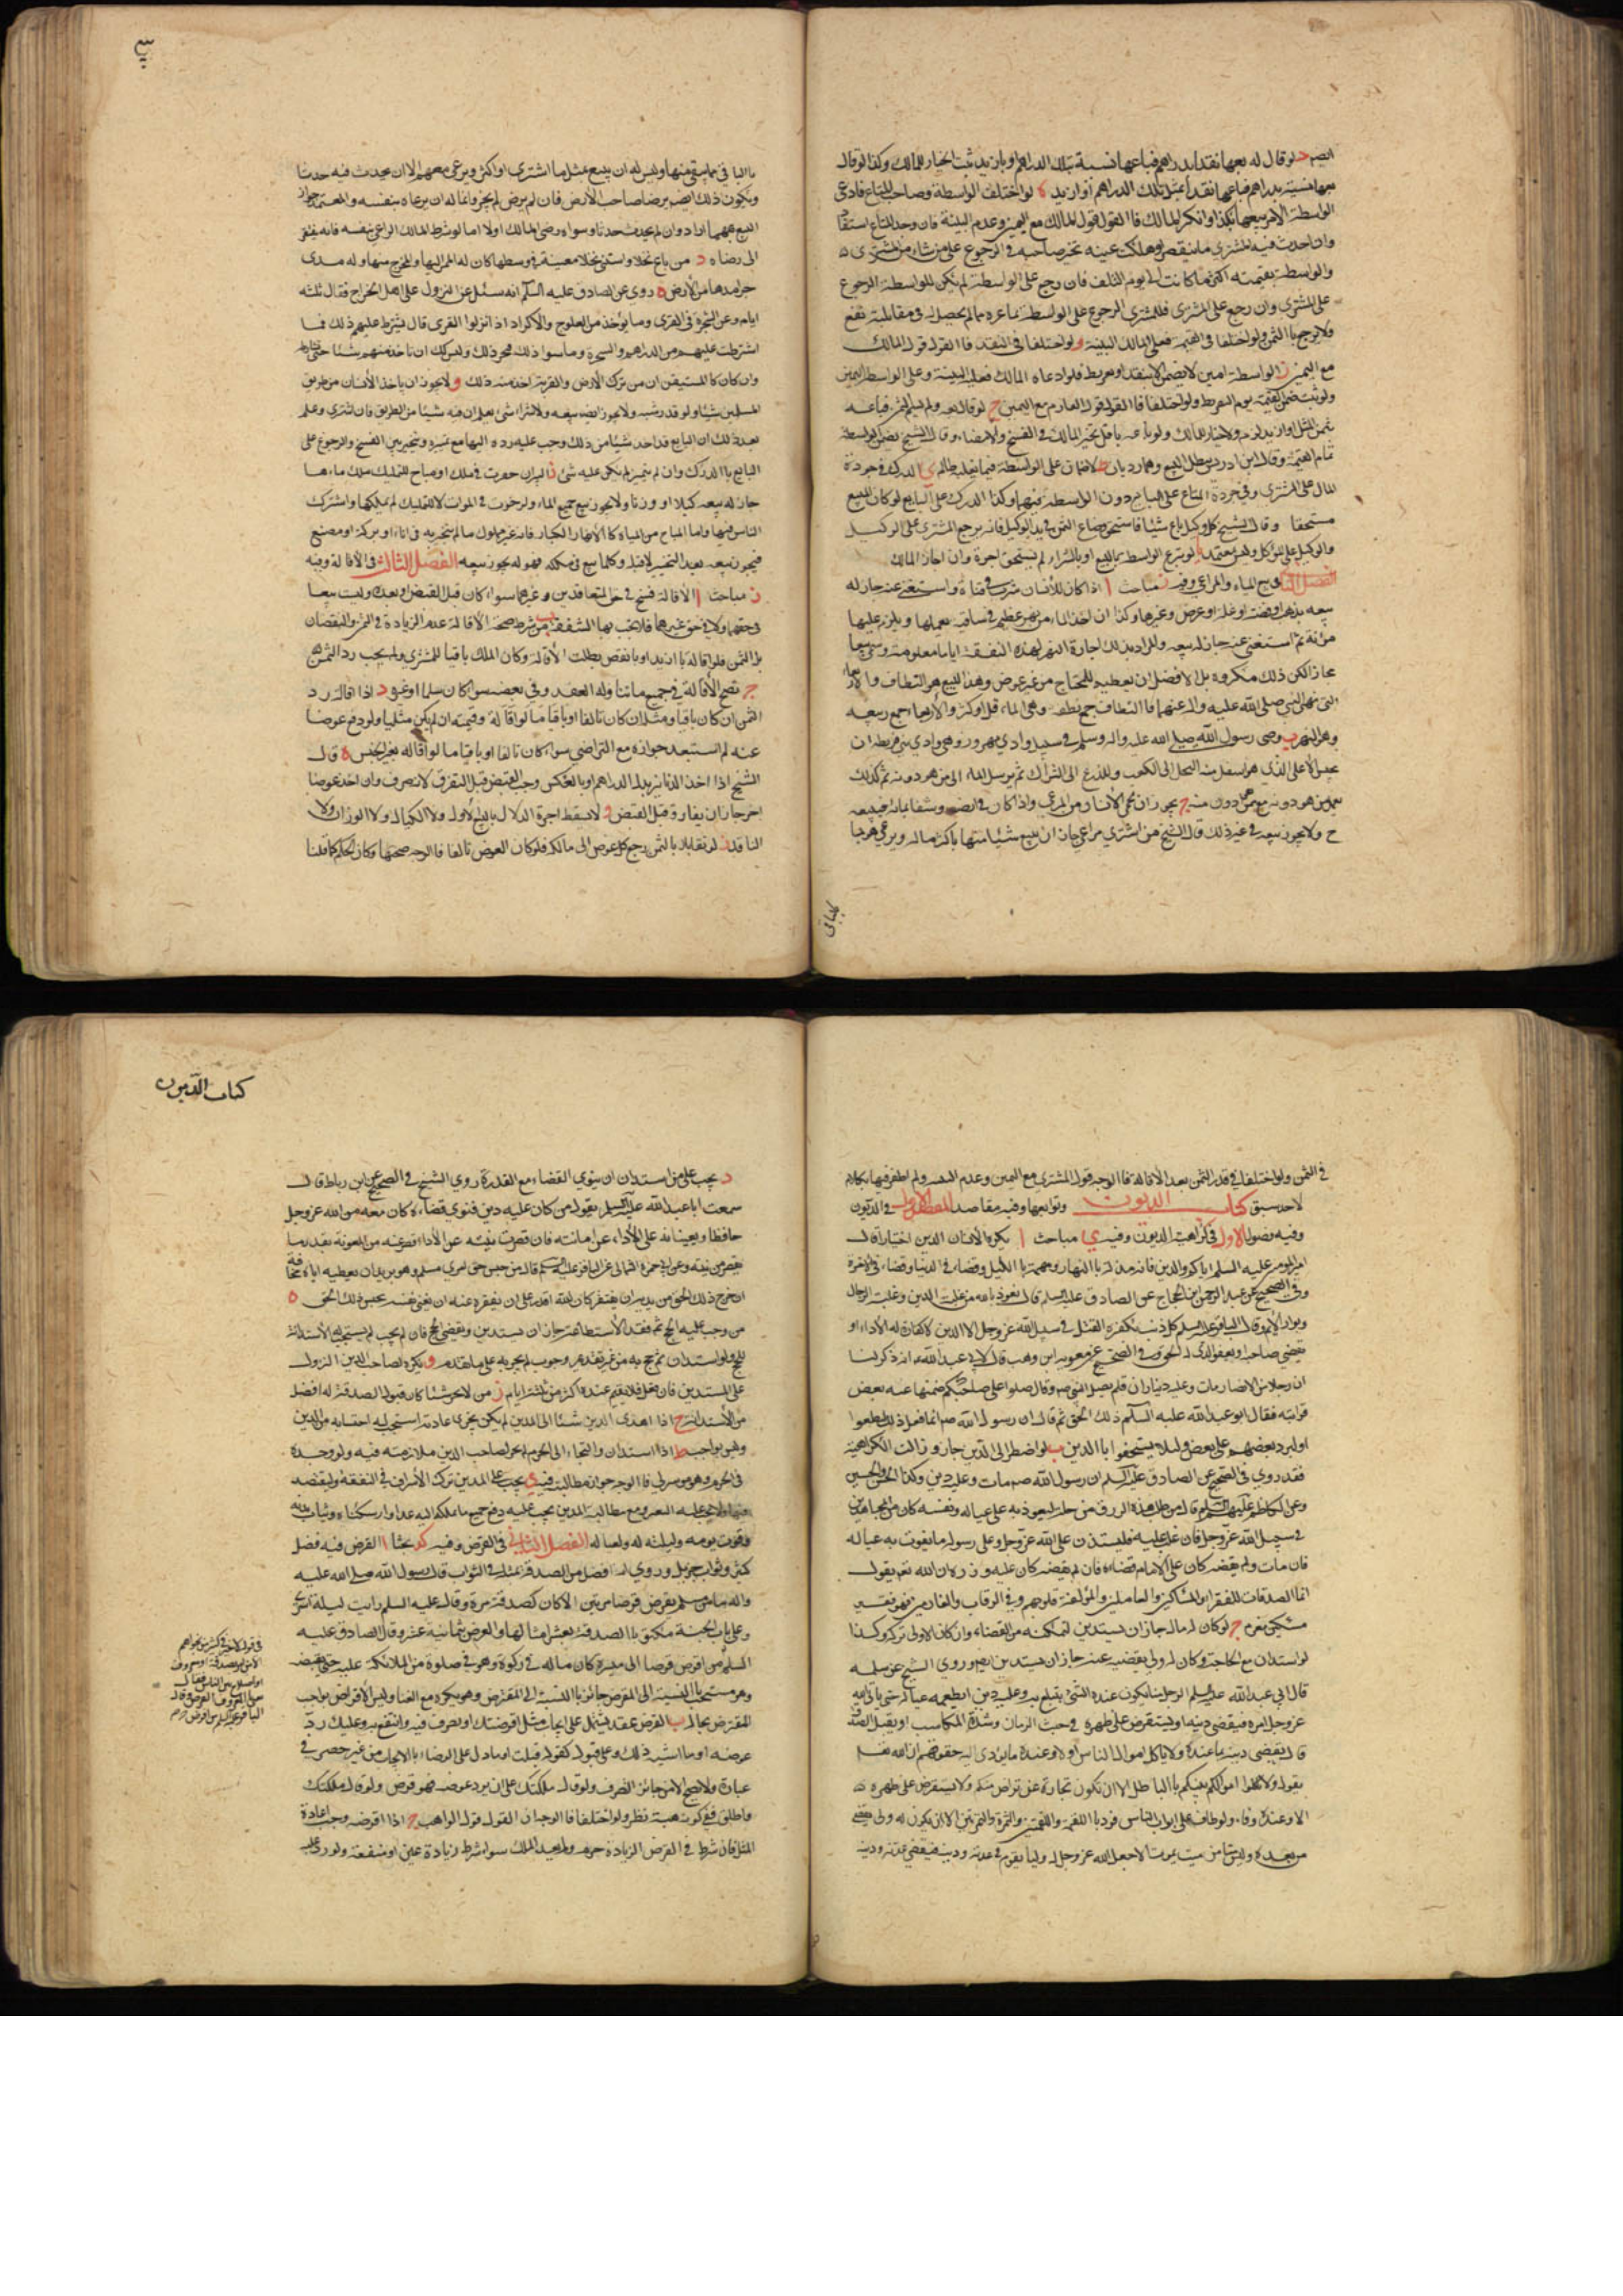 ايضا د لو قال له بعها نقدا بدراهم فباعها نسية بتلك الدراهم او بازيد ثبت الخيار للمالك وكذا لو قال
بعها نسية بدراهم فباعها نقدا بمثل تلك الدراهم أو ازيد ه لو اختلف الواسطة وصاحب المتاع فادعى
الواسطة الامر ببيعها بكذا وانكر المالك فالقول قول المالك مع اليمين وعدم البينة فان وجد المتاع استعاد
وان احدث فيه المشتري ما ينقصه او هلكت عينه تخير صاحبه في الرجوع على من شاء من المشتري
والواسطة بقيمته اكثر ما كانت الى يوم التلف فان رجع على الواسطة لم يكن للواسطة الرجوع
على المشتري وان رجع على المشتري فللمشتري الرجوع على الواسطة بما غرمه مما لم يحصل له في مقابلته نفع
ولا يرجع بالثمن ولو اختلفا في القيمة فعلى المالك البينة و لو اختلفا في النقد فالقول قول المالك
مع اليمين ز الواسطة امين لا يضمن الا بتفريط فلو ادعاه المالك فعليه البينة وعلى الواسطة اليمين
ولو ثبت ضمن القيمة يوم التفريط ولو اختلفا فالقول قول الغارم مع اليمين ح لو قال بعه ولم يسم الثمن فباعه
بثمن المثل او ازيد لزم ولا خيار للمالك ولو باعه باقل تخير المالك في الفسخ والامضاء وقال الشيخ يضمن الواسطة
تمام القيمة وقال ابن ادريس يبطل البيع وهما رديان ط لا ضمان على الواسطة فيما يغلبه ظالم ي الدرك في جودة
المال على المشتري وفي جودة المتاع على البايع دون الواسطة فيهما وكذا الدرك على البايع لو كان المبيع
مستحقا وقال الشيخ كل وكيل باع شيئا فاستحق وضاع الثمن في يد الوكيل فانه يرجع المشتري على الوكيل
والوكيل على الموكل وليس بمعتمد يا لو تبرع الواسطة بالبيع او بالشراء لم يستحق اجرة وان اجاز المالك
الفصل الثاني في بيع المياه والمراعي وفيه ز مباحث ا اذا كان للانسان شرب في قناة واستغنى عنه جاز له
بيعه بذهب او فضة او غلة او عرض وغيرها وكذا ان اخذ الماء من نهر عظيم في ساقية يعملها ويلزم عليها
مؤنة ثم استغنى عنه جاز له بيعه والمراد بذلك اجارة النهر لهذه النفقة اياما معلومة وسمي بيعا
مجازا لكن ذلك مكروه بل الافضل ان يعطيه للمحتاج من غير عوض وهذا البيع هو النطاف والاربعاء
التي نهى النبي صلى الله عليه واله عنهما فالنطاف جمع نطفة وهي الماء قل او كثر والأربعاء جمع ربيع
وهو النهر ب وقضى رسول الله صلى الله عليه واله وسلم في سيل وادي مهزور وهو وادي بني قريظة ان
يحبس الاعلى الذي هو اسفل منه النخل الى الكعب وللزرع الى الشراك ثم يرسل الماء الى من هو دونه ثم كذلك
يعمل من هو دونه مع من هو دونه ج يجوز ان يحمي الانسان من المرعى واذا كان في ارضه وسقاه بمائه فيبيعه
ح ولا يجوز بيعه في غير ذلك قال الشيخ من اشترى مراعي جاز ان يبيع شيئا منها باكثر ماله ويرعى هو بما
بالباقي
بالباقي مما بقي منها وليس له ان يبيع بمثل ما اشترى او اكثر ويرعى معهم الا ان يحدث فيه حدثا
ويكون ذلك ايضا برضا صاحب الأرض فان لم يرض لم يجز وانما له ان يرعاه بنفسه والمعتمد جواز
البيع مهما اراد وان لم يحدث حدثا وسواء رضي المالك اولا اما لو شرط المالك الراعي بنفسه فانه يفتقر
الى رضاه د من باع نخلا واستثنى نخلا معينة في وسطها كان له الممر اليها والمخرج منها وله مدى
جرايدها من الأرض ه روى عن الصادق عليه السلم انه سئل عن النزول على اهل الخراج فقال ثلثة
ايام وعن السخرة في القرى وما يؤخذ من العلوج والأكراد اذا نزلوا القرى قال تشترط عليهم ذلك فما
اشترطت عليهم من الدراهم والسخرة وما سوا ذلك فيجوز ذلك وليس لك ان تاخذ منهم شيئا حتى تشارطهم
وان كان كالمستيقن ان من ترك الأرض والقرية اخذ منه ذلك و لا يجوز ان ياخذ الأنسان من طريق
المسلمين شيئا ولو قدر شبر ولا يجوز ايضا بيعه ولا شراء شئ يعلم ان فيه شيئا من الطريق فان اشترى وعلم
بعد ذلك ان البايع قد اخذ شيئا من ذلك وجب عليه رده اليها مع تميزه ويتخير بين الفسخ والرجوع على
البايع بالدرك وان لم يتميز لم يكن عليه شئ ز البئر ان حفرت في ملك او مباح للتمليك ملك ماءها
جاز له بيعه كيلا او وزنا ولا يجوز بيع جميع الماء ولو حفرت في الموات لا للتمليك لم يملكها واشترك
الناس فيها واما المباح من المياه كالأنهار الكبار فانه غير مملوك ما لم يتحيز به في اناء او بركة او مصنع
فيجوز بيعه بعد التحيز لا قبله وكلما يبيع في ملكه فهو له يجوز بيعه الفصل الثالث في الأقالة وفيه
ز مباحث ا الأقالة فسخ في حق المتعاقدين وغيرهما سواء كان قبل القبض او بعده وليست بيعا
في حقهما ولا في حق غيرهما فلا يجب بها الشفعة ب من شرط صحة الأقالة عدم الزيادة في الثمن والنقصان
بل الثمن فلو اقاله بازيد او بانقص بطلت الأقالة وكان الملك باقيا للمشتري ولم يجب رد الثمن
ج تصح الأقالة في جميع ما تناوله العقد وفي بعضه سواء كان سلما او غيره د اذا اقاله رد
الثمن ان كان باقيا ومثله ان كان تالفا او باقيا ما لو اقاله وقيمته ان لم يكن مثليا ولو دفع عوضا
عنه لم استبعد جوازه مع التراضي سواء كان تالفا او باقيا ما لو اقاله بغير الجنس ه قال
الشيخ اذا اخذ الدنانير بدل الدراهم او بالعكس وجب القبض قبل التفرق لانه صرف وان اخذ عوضا
اخر جاز ان يفارقه قبل القبض و لا يسقط اجرة الدلال بالبيع الأول ولا الكيال ولا الوزان ولا
الناقد ز لو تقايلا بالثمن رجع كل عوض الى مالكه فلو كان العوض تالفا فالوجه صحتها وكان الحكم كما قلنا
في الثمن ولو اختلفا في قدر الثمن بعد الأقالة فالوجه قول المشتري مع اليمين وعدم البينة ولم اظفر فيها بكلام
لاحد سبق كتاب الديون وتوابعها وفيه مقاصد المقصد الاول في الديون
وفيه فصول الاول في كراهية الديون وفيه ي مباحث ا يكره الأنسان الدين اختيارا قال
امير المؤمنين عليه السلم اياكم والدين فانه مذلة بالنهار ومهمة بالليل وقضاء في الدنيا وقضاء في الاخرة
وفي الصحيح عن عبد الرحمن بن الحجاج عن الصادق عليه السلم قال نعوذ بالله من غلبة الدين وغلبة الرجال
وبوار الأيم وقال الباقر عليه السلم كل ذنب يكفره القتل في سبيل الله عز وجل الا الدين لا كفارة له الا اداءه او
يقضي صاحبه او يعفو الذي له الحق وفي الصحيح عن معوية بن وهب قال لابي عبد الله ع انه ذكر لنا
ان رجلا من الانصار مات وعليه ديناران فلم يصل النبي ص وقال صلوا على صاحبكم ضمنها عنه بعض
قرابته فقال ابو عبد الله عليه السلم ذلك الحق ثم قال ان رسول الله ص انما فعل ذلك ليتعظوا
وليرد بعضهم على بعض ولئلا يستخفوا بالدين ب لو اضطر الى الدين جاز وزالت الكراهية
فقد روي في الصحيح عن الصادق عليه السلم ان رسول الله ص مات وعليه دين وكذا الحسن والحسين
وعن الكاظم عليه السلم قال من طلب هذا الرزق من حله ليعود به على عياله ونفسه كان كالمجاهد
في سبيل الله عز وجل فان غلب عليه فليستدن على الله عز وجل وعلى رسوله ما يقوت به عياله
فان مات ولم يقضه كان على الامام قضاءه فان لم يقضه كان عليه وزره ان الله تعم يقول
انما الصدقات للفقراء والمساكين والعاملين والمؤلفة قلوبهم وفي الرقاب والغارمين فهو فقير
مسكين مغرم ج لو كان له مال جاز ان يستدين لتمكنه من القضاء وان كان الاولى تركه وكذا
لو استدان مع الحاجة وكان له ولي يقضيه عنه جاز ان يستدين ايضا وروي الشيخ عن سلمة
قال لابي عبد الله عليه السلم الرجل منا يكون عنده الشئ يتبلغ به وعليه دين ايطعمه عياله حتى ياتي الله
عز وجل بيسره فيقضي دينه او يستقرض على ظهره في خبث الزمان وشدة المكاسب او يقبل الصدقة
قال يقضي دينه بما عنده ولا ياكل اموال الناس الا وعنده ما يؤدي اليه حقوقهم ان الله تعم
يقول ولا تاكلوا اموالكم بينكم بالباطل الا ان تكون تجارة عن تراض منكم ولا يستقرض على ظهره
الا وعنده وفاء ولو طاف على ابواب الناس فردوه باللقمة واللقمتين والتمرة والتمرتين الا ان يكون له ولي يقضي
من بعده وليس منا من ميت يموت الا جعل الله عز وجل له وليا يقوم في عدته ودينه فيقضي عدته ودينه
كتاب الديون
د يجب على من استدان ان ينوي القضاء مع القدرة روي الشيخ في الصحيح عن ابن رباط قال
سمعت ابا عبد الله عليه السلم يقول من كان عليه دين فنوى قضاءه كان معه من الله عز وجل
حافظا يعينانه على الأداء عن امانته فان قصرت نيته عن الأداء قصر عنه من المعونة بقدر ما
يقصر من نيته وعن ابي حمزة الثمالي عن الباقر عليه السلم قال من حبس حق امرئ مسلم وهو يريد ان يعطيه اياه مخافة
ان خرج ذلك الحق من يديه ان يفتقر كان الله اقدر على ان يفقره عنه ان يغني نفسه بحبس ذلك الحق ه
من وجب عليه الحج ثم فقد الأستطاعة جاز ان يستدين ويقضي الحج فان لم يجب لم يستحب له الأستدانة
للحج ولو استدان ثم حج به من غير تقدم وجوب لم يجزيه على ما تقدم و يكره لصاحب الدين النزول
على المستدين فان فعل فلا يقيم عنده اكثر من ثلثة ايام ز من لا يجد شيئا كان قبول الصدقة له افضل
من الأستدانة ح اذا اهدى المدين شيئا الى المدين لم يكن يجري عادته استحب له احتسابه من الدين
وليس بواجب ط اذا استدان والتجاء الى الحرم لم يجز لصاحب الدين ملازمته فيه ولو وجده
في الحرم وهو موسر له فالوجه جواز مطالبته فيه ي يجب على المدين ترك الأسراف في النفقة وليقتصد
فيها ولا يجب عليه التقتير ومع مطالبة المدين يجب عليه دفع جميع ما يملكه اليه عدا دار سكناه وثياب بدنه
وقوت يومه وليلته له ولعياله الفصل الثاني في القرض وفيه كد بحثا ا القرض فيه فضل
كثير وثواب جزيل وروي انه افضل من الصدقة بمثله في الثواب قال رسول الله صلى الله عليه
واله ما من مسلم يقرض قرضا مرتين الا كان كصدقة مرة وقال عليه السلم رايت ليلة اسري
وعلى باب الجنة مكتوب الصدقة بعشر امثالها والقرض بثمانية عشر وقال الصادق عليه
السلم من اقرض قرضا الى ميسرة كان ماله في زكوة وهو في صلوة من الملائكة عليه حتى يقبضه
وهو مستحب بالنسبة الى المقرض جائز بالنسبة الى المقترض وهو يكره مع الغنا وليس الأقراض بواجب
المقرض بحال ب القرض عقد يشتمل على ايجاب مثل اقرضتك او تصرف فيه وانتفع به وعليك رد
عوضه او ما اشبه ذلك وعلى قبول كقوله قبلت او ما دل على الرضاء بالايجاب من غير حصر في
عبارة ولا يصح الا من جائز التصرف ولو قال ملكتك على ان يرد عوضه فهو قرض ولو قال ملكتك
واطلق ففي كونه هبة نظر ولو اختلفا فالوجه ان القول قول الواهب ج اذا اقرضه وجب اعادة
المثل فان شرط في القرض الزيادة حرم ولم يفد الملك سواء شرط زيادة عين او منفعة ولو رد عليه
في قوله لا خير في كثير من نجواهم
الا من امر بصدقة او معروف
او اصلاح بين الناس فقال
يعني بالمعروف القرض وقال
الباقر عليه السلم من اقرض